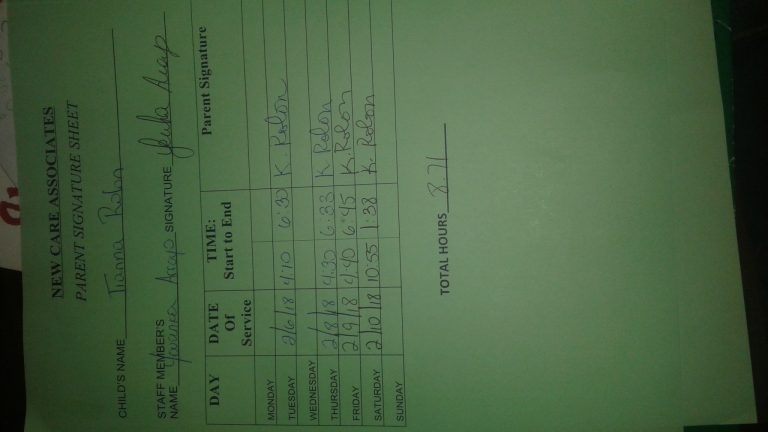 NEW CARE ASSOCIATES
PARENT SIGNATURE SHEET
CHILD'S NAME Tianna Rolon
STAFF MEMBER'S
NAME SIGNATURE
DAY DATE Of Service TIME: Start to End Parent Signature
MONDAY
TUESDAY 2/6/18 4:10 6:30 K. Rolon
WEDNESDAY
THURSDAY 2/8/18 4:30 6:33 K. Rolon
FRIDAY 2/9/18 4:40 6:45 K. Rolon
SATURDAY 2/10/18 10:55 1:38 K. Rolon
SUNDAY
TOTAL HOURS 8.71